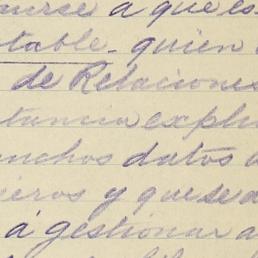 a que es
table. quien
de Relaciones
tancia explí
muchos datos
jeros y que se a
á gestionar a